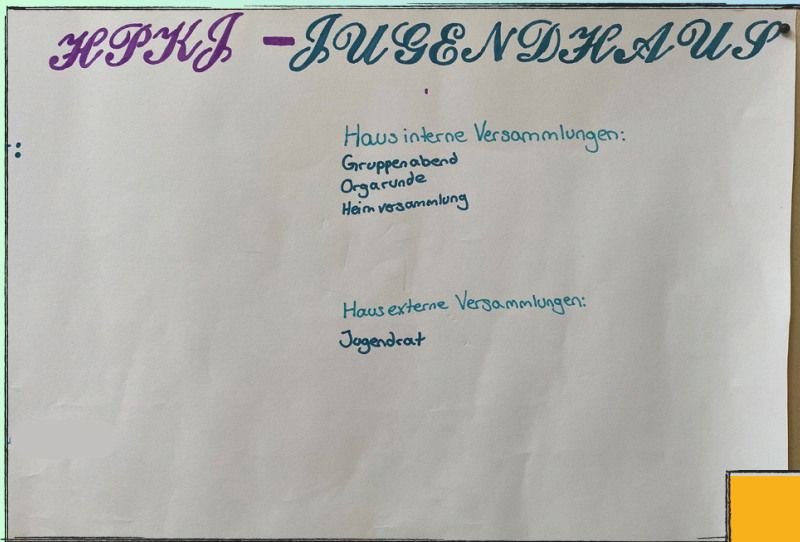 HPKJ - JUGENDHAUS
:
Hausinterne Versammlungen:
Gruppenabend
Orgarunde
Heimversammlung
Hausexterne Versammlungen:
Jugendrat